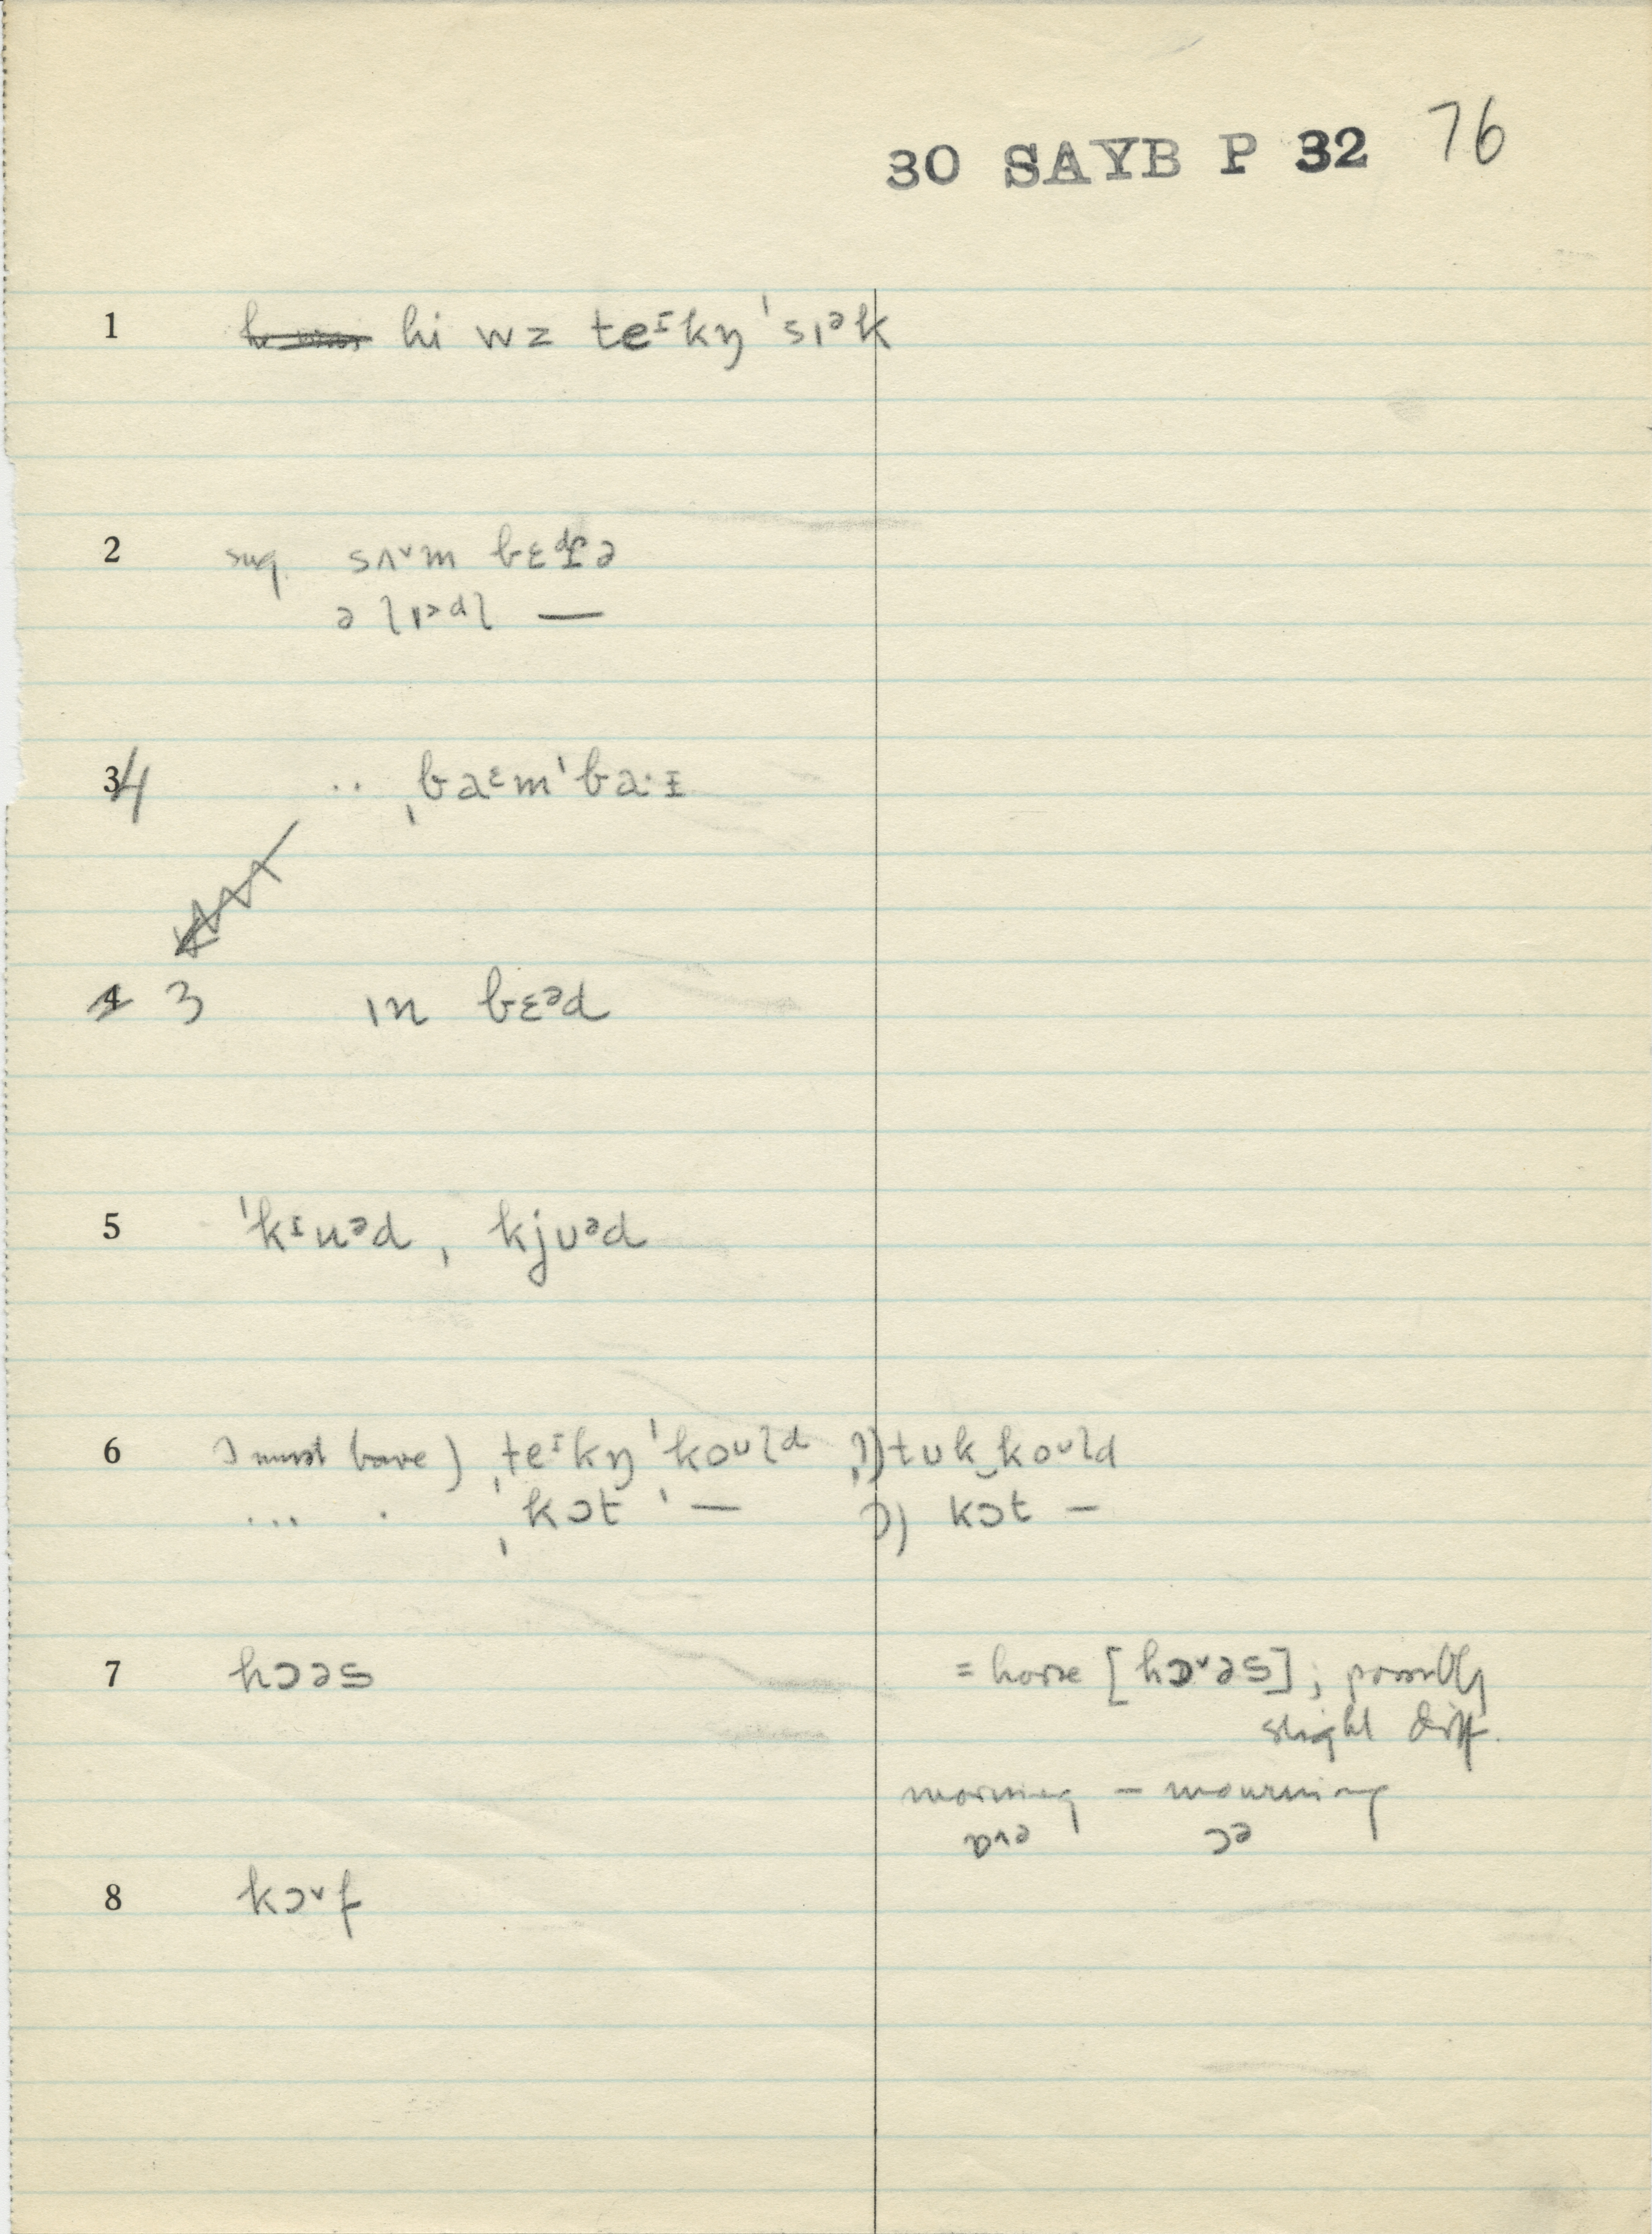 30 SAYB P 32 76
1 hi wz teᶦkŋ ˈsɪᵊk
2 sug. sʌ˅m bɛ ə
ə lɪᵊdl —
4 .. ˌbaᵋmˈbaˑɪ
3 ɪn bɛᵊd
5 ˈkᶦuᵊd, kjʊᵊd
6 I must have) ˌteᶦkŋ ˈkoᶸld ɔ)) tʊk‿koᶸld
... . ˌkɔt ˈ— ɔ) kɔt —
7 hɔəs = horse [hɒ˅əs]; possibly
slight diff.
morning – mourning
ɒ^ə ɔə
8 kɔ˅f